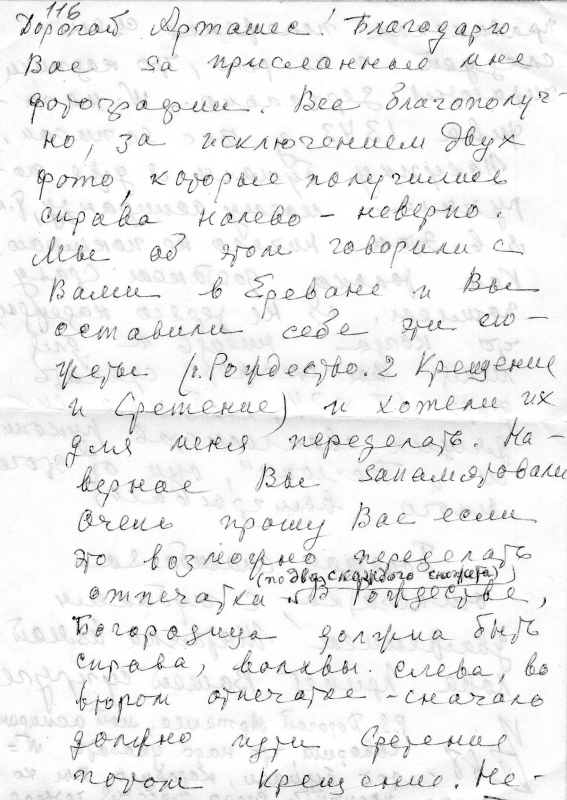 116
Дорогой Арташес! Благодарю
Вас за присланные мне
фотографии. Все благополуч-
но, за исключением двух
фото, которые получились
справа налево - неверно.
Мы об этом говорили с
Вами в Ереване и Вы
оставили себе эти сю-
жеты (1. Рождество. 2 Крещение
и Сретение) и хотели их
для меня переделать. На-
верное Вы запамятовали
Очень прошу Вас если
это возможно переделать
(по два с каждого сюжета)
отпечатки. В Рождестве,
Богородица должна быть
справа, волхвы. слева, во
втором отпечатке - сначало
должно идти Сретение
потом Крещение. Не-